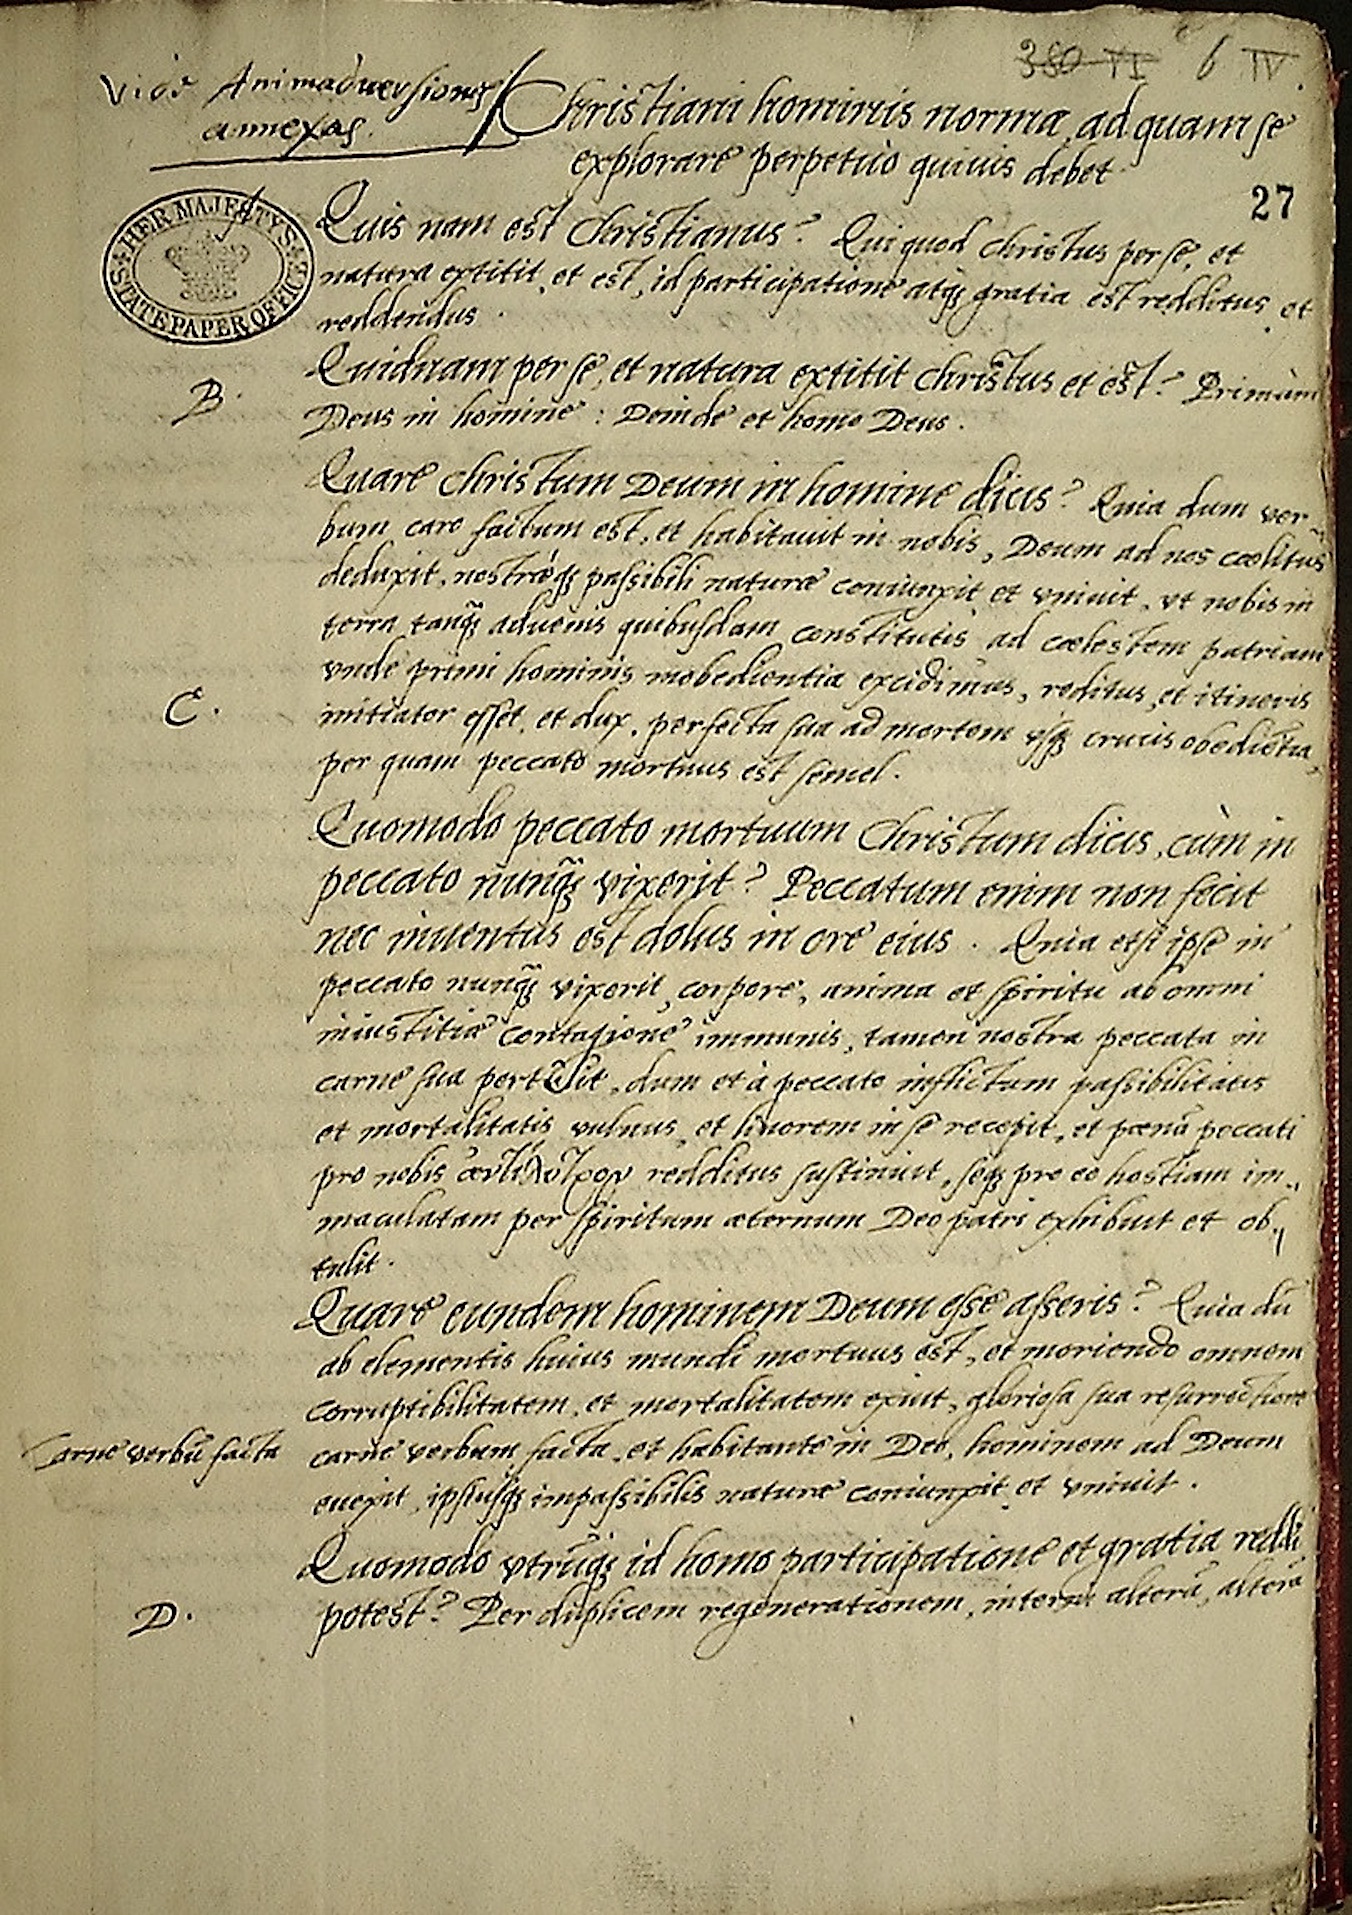 380 VI 6 IV
Vide Animaduersiones
annexas.
Christiani hominis norma, ad quam se
explorare perpetuò quiuis debet
27
HER MAJESTY'S
STATE PAPER OFFICE
Quis nam est Christianus? Qui quod Christus per se, et
natura extitit, et est, id participatione atq; gratia est redditus, et
reddendus.
B.
Quidnam per se, et natura extitit Christus et est? Primùm
Deus in homine: Deinde et homo Deus.
Quare Christum Deum in homine dicis? Quia dum ver-
bum caro factum est, et habitauit in nobis, Deum ad nos cœlitus
deduxit, nostræq; passibili naturæ coniunxit et vniuit, vt nobis in
terra tanq̃ aduenis quibusdam constitutis ad cœlestem patriam
vnde primi hominis inobedientia excidimus, reditus, et itineris
C.
initiator esset, et dux, perfecta sua ad mortem vsq; crucis obediẽtia,
per quam peccato mortuus est semel.
Quomodo peccato mortuum Christum dicis, cùm in
peccato nunq̃ vixerit? Peccatum enim non fecit
nec inuentus est dolus in ore eius. Quia etsi ipse in
peccato nunq̃ vixerit, corpore, anima et spiritu ab omni
iniustitiæ contagione immunis, tamen nostra peccata in
carne sua pertulit, dum et à peccato inflictum passibilitatis
et mortalitatis vulnus, et liuorem in se recepit, et pœnã peccati
pro nobis ἀντίλυτρον redditus sustinuit, seq; pro eo hostiam im-
maculatam per spiritum æternum Deo patri exhibuit et ob-
tulit.
Quare eundem hominem Deum esse asseris? Quia dũ
ab elementis huius mundi mortuus est, et moriendo omnem
corruptibilitatem, et mortalitatem exuit, gloriosa sua resurrectione
Carne verbũ facta
carne verbum facta, et habitante in Deo, hominem ad Deum
euexit, ipsiusq; impassibilis naturæ coniunxit, et vniuit.
Quomodo vtrũq; id homo participatione et gratia reddi
D.
potest? Per duplicem regenerationem, internã alterã, alterã